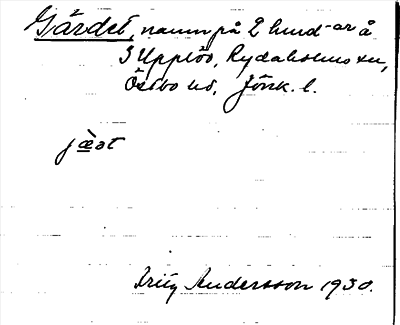 Gärdet, namn på 2 hmd-ar å
3 Upplöv, Rydaholms sn,
Östbo hd, Jönk. l.
jæ̀st
Fritz Andersson 1930.